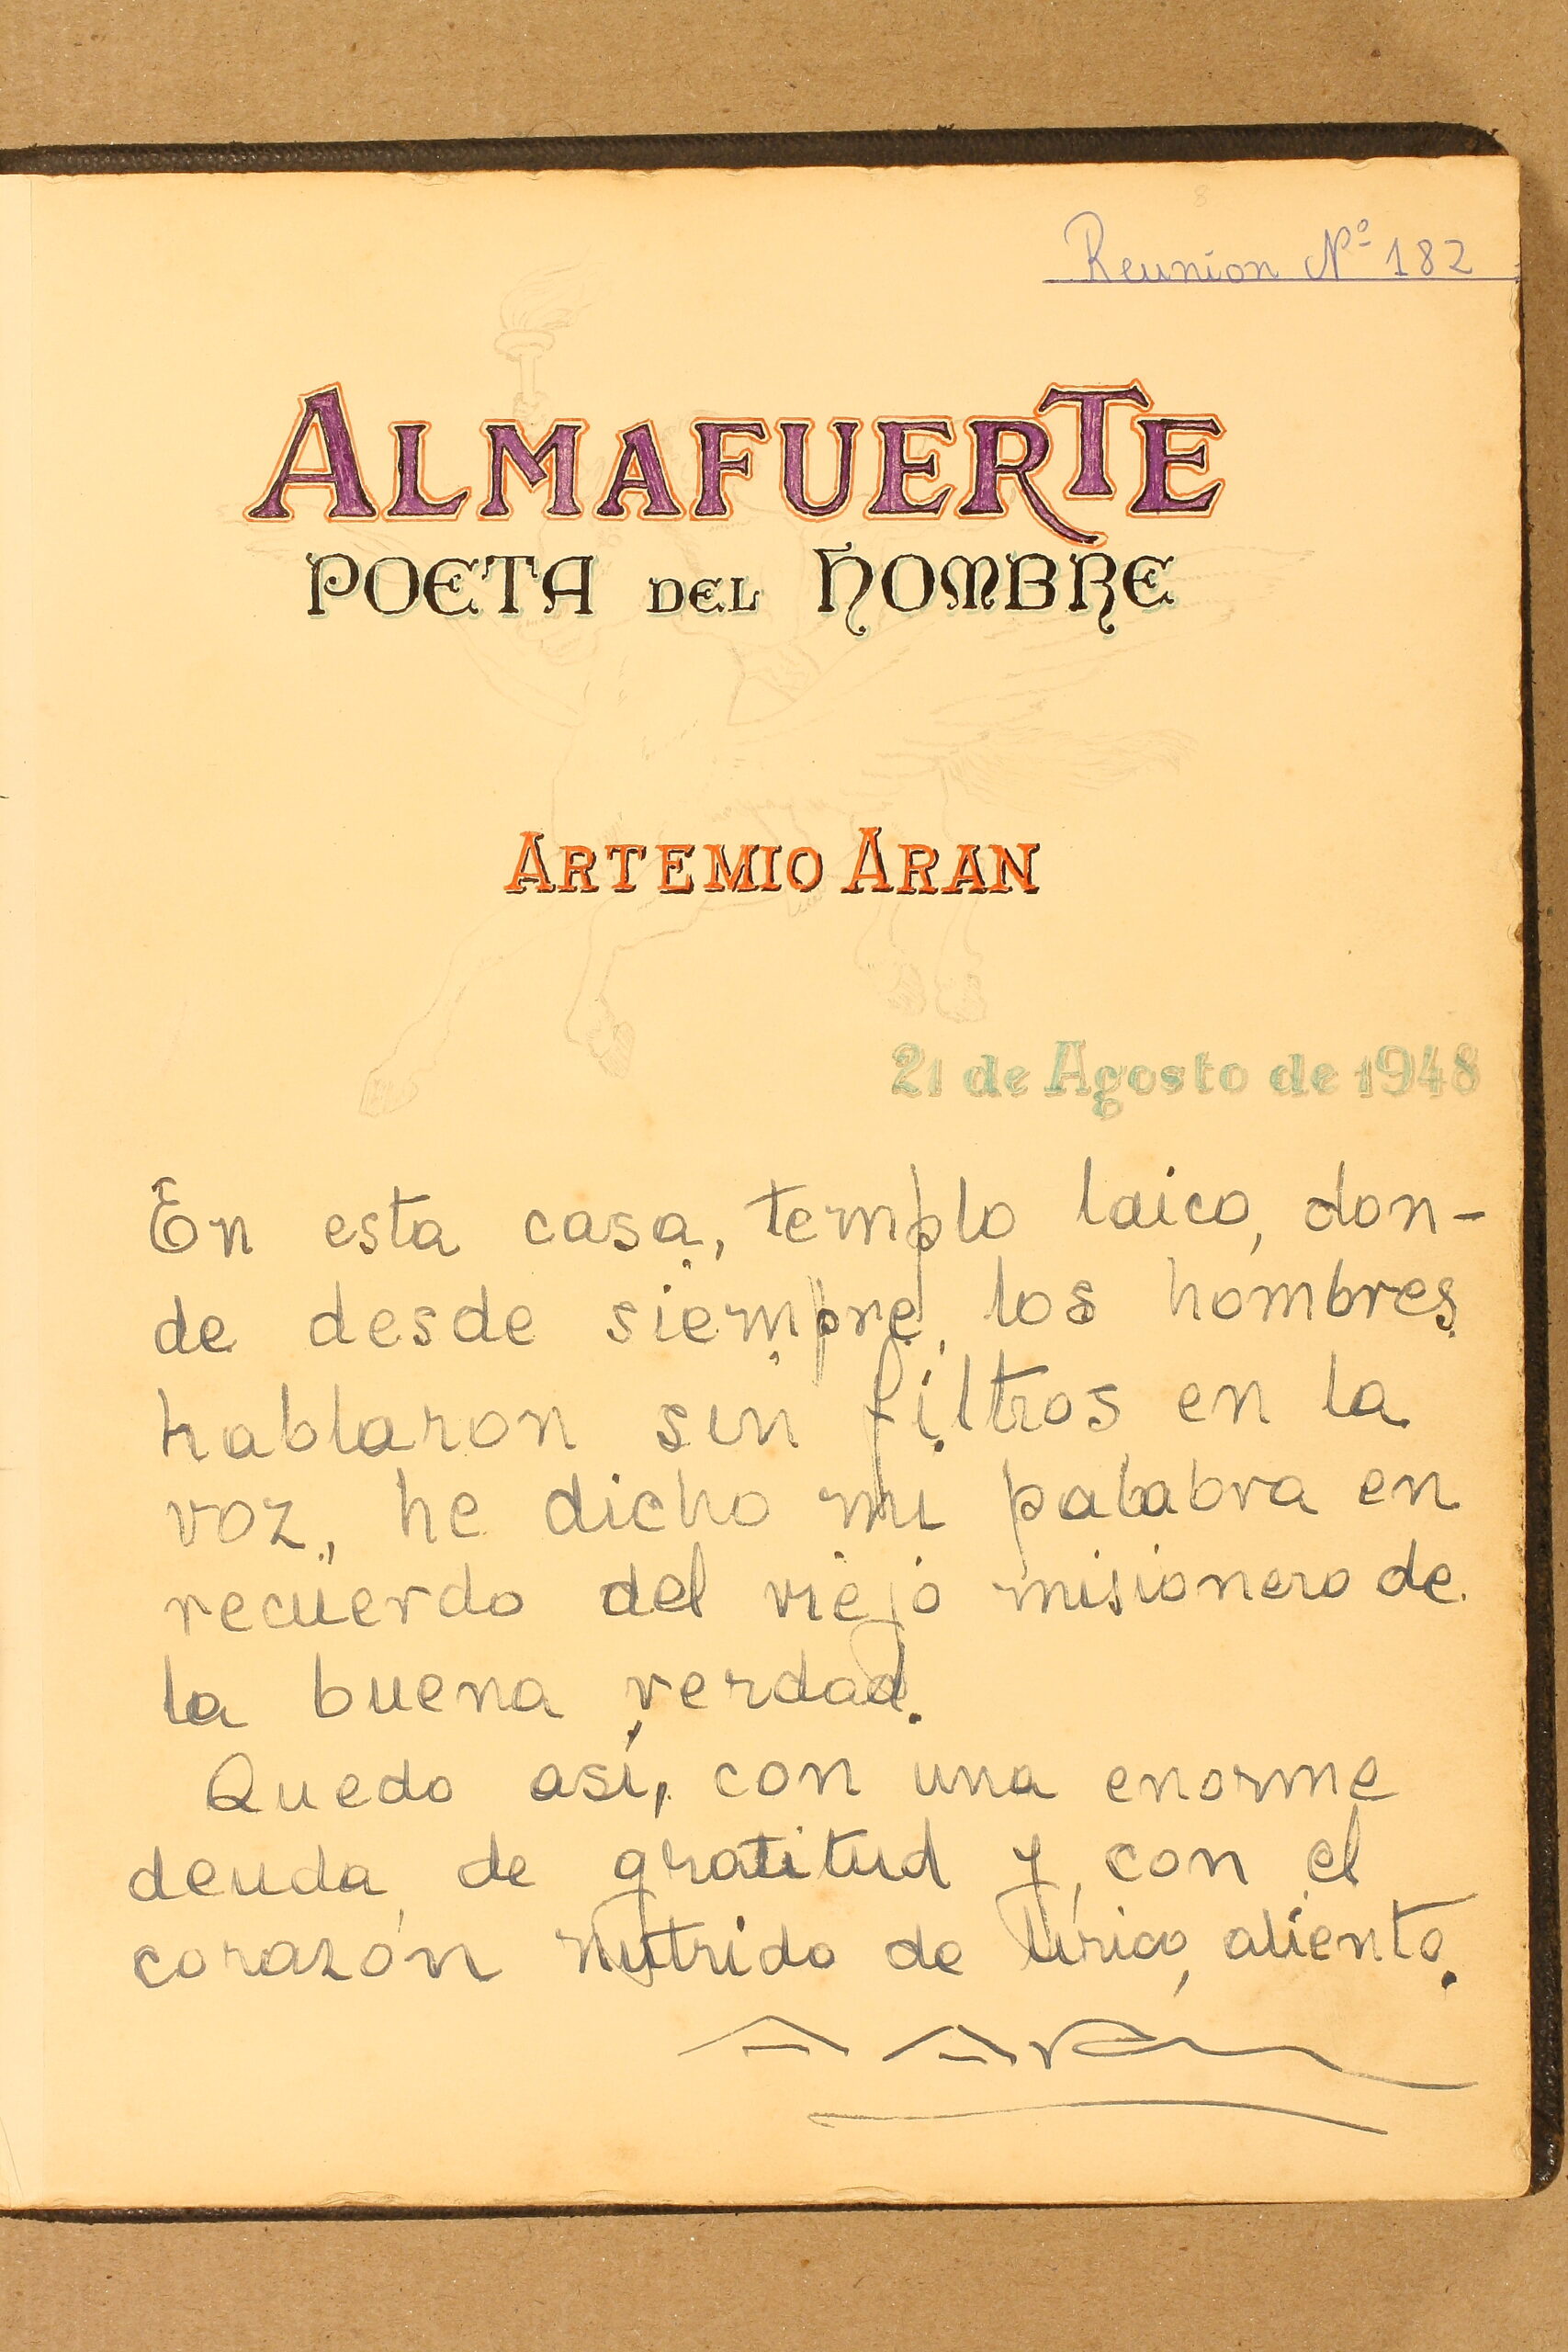 Reunion Nº 182
ALMAFUERTE
POETA DEL HOMBRE
ARTEMIO ARAN
21 de Agosto de 1948
En esta casa, templo laico, don-
de desde siempre los hombres
hablaron sin filtros en la
voz, he dicho mi palabra en
recuerdo del viejo misionero de
la buena verdad.
Quedo así, con una enorme
deuda de gratitud y con el
corazón nutrido de lírico aliento.
A Aran